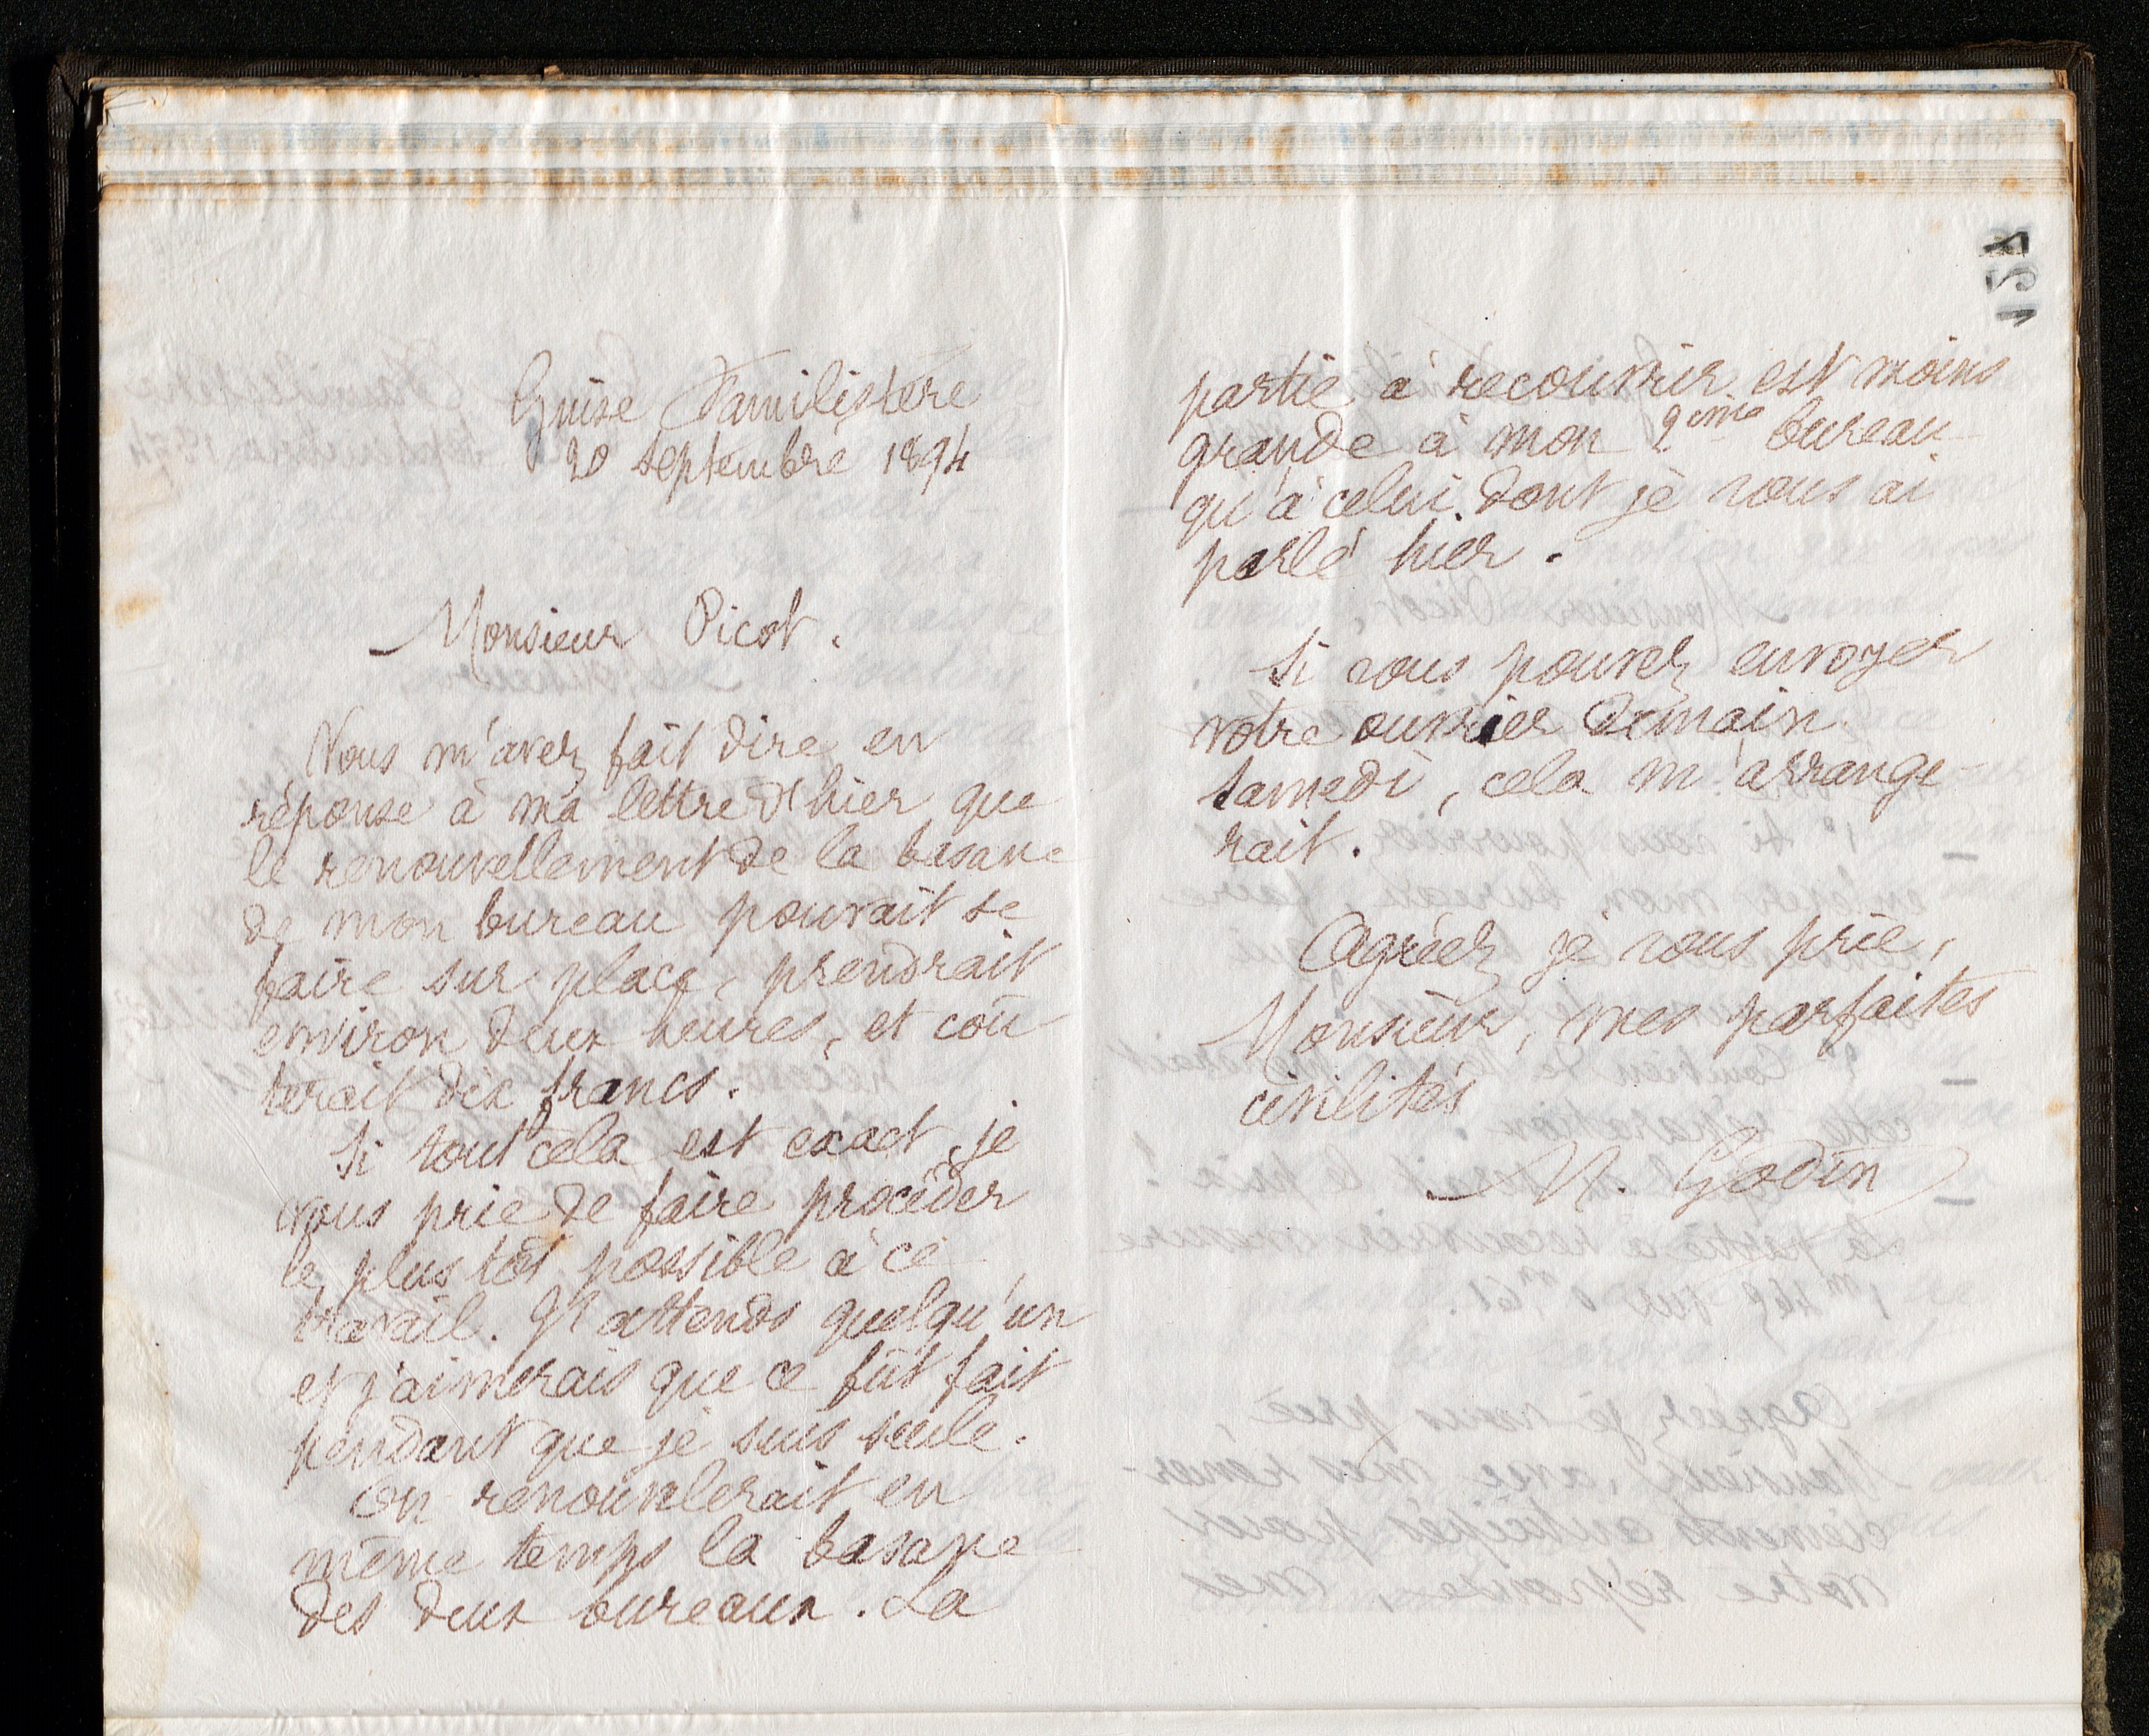 154
Guise Familistère
20 septembre 1894
Monsieur Picot.
Vous m'avez fait dire en
réponse à ma lettre d'hier que
le renouvellement de la basane
de mon bureau pouvait se
faire sur place, prendrait
environ deux heures, et coû
terait dix francs.
Si tout cela est exact, je
vous prie de faire procéder
le plus tôt possible à ce
travail. J'attends quelqu'un
et j'aimerais que ce fût fait
pendant que je suis seule.
On renouvlerait en
même temps la basane
des deux bureaux. La
partie à recouvrir est moins
grande à mon 2ème bureau
qu'à celui dont je vous ai
parlé hier.
Si vous pouvez envoyer
votre ouvrier demain
samedi, cela m'arrange-
rait.
Agréez, je vous prie,
Monsieur, mes parfaites
civilités
M. Godin